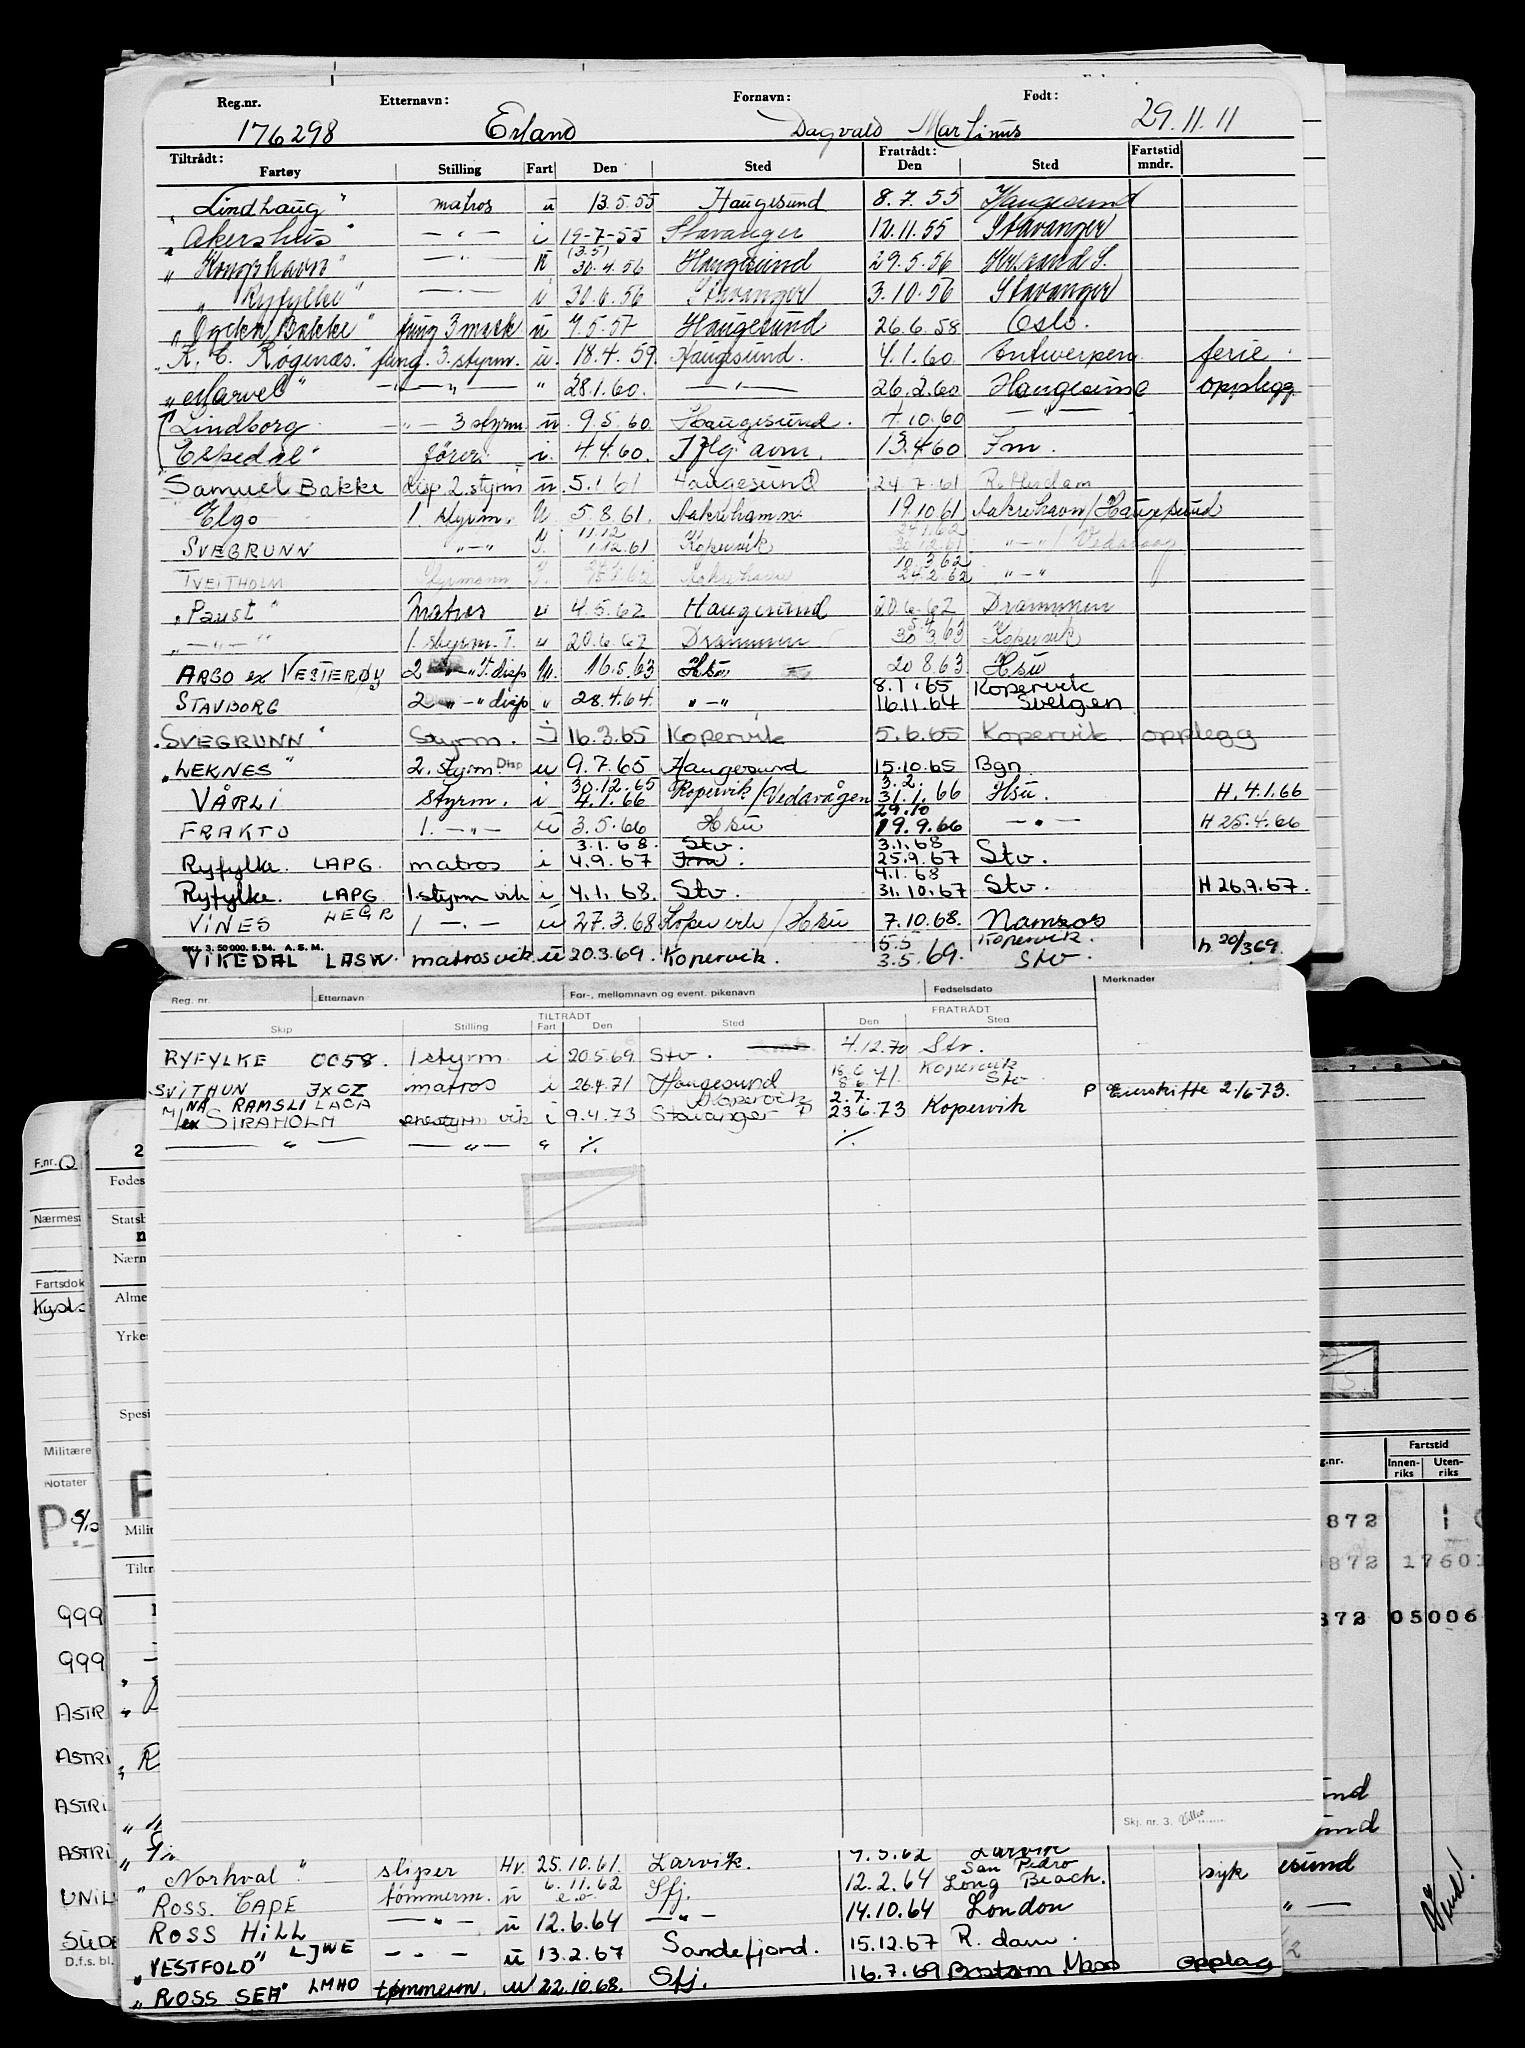 Reg.nr. Etternavn: Fornavn: Født:
176298 Erland Dagvald Martinus 29.11.11
Tiltrådt: Fratrådt: Fartstid
Fartøy Stilling Fart Den Sted Den Sted mndr.
"Lindhaug" matros u 13.5.55 Haugesund 8.7.55 Haugesund
"Akershus" —"— i 19-7-55 Stavanger 12.11.55 Stavanger
(3.5)
"Kronshavn" —"— u 30.4.56 Haugesund 29.5.56 Kr.sand S.
"Ryfylke" —"— i 30.6.56 Stavanger 3.10.56 Stavanger
Bakke" fung 3 mask u 7.5.57 Haugesund 26.6.58 Oslo.
"K. C. Røgenæs." fung. 3. styrm. u. 18.4.59. Haugesund. 4.1.60. Antwerpen ferie.
"Marvel" —"— " 28.1.60. —"— 26.2.60 Haugesund opplegg
Lindborg —"— 3 styrm. u. 9.5.60 Haugesund. 7.10.60 —"—
"Espedal" fører i. 4.4.60. 13.4.60
Samuel Bakke disp. 2. styrm u. 5.1.61 Haugesund 24.7.61 Rotterdam
Elgo 1. styrm. u 5.8.61. Aakrehamn 19.10.61 Aakrehavn/Haugesund
11.12 27.1.62
SVEGRUNN "—" I. 1.12.61 Kopervik 30.12.61 "—"/Vedavaag
10.3.62
TVEITHOLM Styrmann I. Aakrehavn 24.2.62 "—"
"Paust" Matros u 4.5.62 Haugesund 20.6.62 Drammen
5.4
"—"—" 1. styrm. T. u 20.6.62 Drammen 30.3.63 Kopervik
ARGO ex VESTERØY 2 —"— T. disp U. 16.5.63 Hsu 20 8.63 Hsu
8.1.65 Kopervik
STAVBORG 2 "—" disp " 28.4.64. "—" 16.11.64 Svelgen
"SVEGRUNN" Styrm. I 16.3.65 Kopervik 5.6.65 Kopervik opplegg
"LEKNES" 2. styrm. Disp u 9.7.65 Haugesund 15.10.65 Bgn
30.12.65 3.2.
VÅRLI styrm. i 4.1.66 Kopervik/Vedavågen 31.1.66 Hsu. H. 4.1.66
29.10
FRAKTO 1. —"— u 3.5.66 Hsu 19.9.66 —"— H 25.4.66
3.1.68. Stv. 3.1.68
Ryfylke. LAPG. matros i 4.9.67 25.9.67 Stv.
4.1.68
Ryfylke. LAPG 1.styrm vik i 4.1.68. Stv. 31.10.67 Stv. H 26.9.67.
VINES LEGR 1 —"— u 27.3.68 Kopervik/Hsu 7.10.68. Namsos
SKJ. 3. 50 000. 5.54. A. S. M. 5.5 Kopervik.
VIKEDAL LASW. matros vik u 20.3.69. Kopervik. 3.5.69. Stv h 20/3 69.
Reg. nr. Etternavn For-, mellomnavn og event. pikenavn Fødselsdato Merknader
TILTRÅDT FRATRÅDT
Skip Stilling Fart Den Sted Den Sted
RYFYLKE OO58. 1styrm i 20.5.69 Stv. 4.12.70 Stv.
18.6 Kopervik
SVITHUN JXCZ matros i 26.4.71 Haugesund 8.6.71. Stv P Eierskifte 2/6-73.
NÅ RAMSLI LACA Kopervik 2.7.
M/ ex SIRAHOLM enestyrm vik i 9.4.73 Stavanger 23.6.73 Kopervik
— " — —"— " ./. ./.
F.nr.
Fødes
Nærmest
Statsb
Nærm
Fartsdok
Alme
Yrke
Spesi
Militære
Notater
P
Milit
Tiltr
999
999
ASTR
ASTRI
ASTRI
ASTRI
UNIL
SUDE
D.f.s. bl.
g.nr. Fartstid
Innenriks Utenriks
872 1
872 1760
872 05006
esund
Skj. nr. 3.
7.5.62 Larvik
"Norhval" sliper Hv. 25.10.61. Larvik. San Pedro
6.11.62
ROSS CAPE tømmerm. u Sfj. 12.2.64 Long Beach. syk
ROSS HILL —"— u 12.6.64 —"— 14.10.64 London
"VESTFOLD" LJWE —"— u 13.2.67 Sandefjord. 15.12.67 R.dam.
"ROSS SEA" LMHO tømmerm. u 22.10.68. Sfj. 16.7.69 Boston Mass opplag